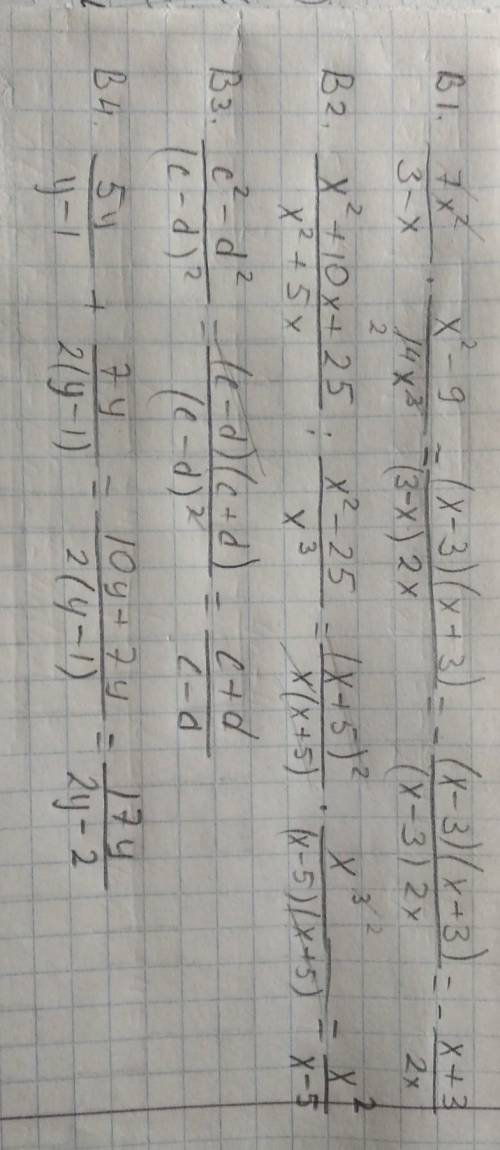 B1. 7x²/(3-x) · (x²-9)/(14x³) = (x-3)(x+3)/((3-x)2x) = -(x-3)(x+3)/((x-3)2x) = -(x+3)/(2x)
B2. (x²+10x+25)/(x²+5x) : (x²-25)/x³ = (x+5)²/(x(x+5)) · x³/((x-5)(x+5)) = x²/(x-5)
B3. (c²-d²)/(c-d)² = (c-d)(c+d)/(c-d)² = (c+d)/(c-d)
B4. 5y/(y-1) + 7y/(2(y-1)) = (10y+7y)/(2(y-1)) = 17y/(2y-2)